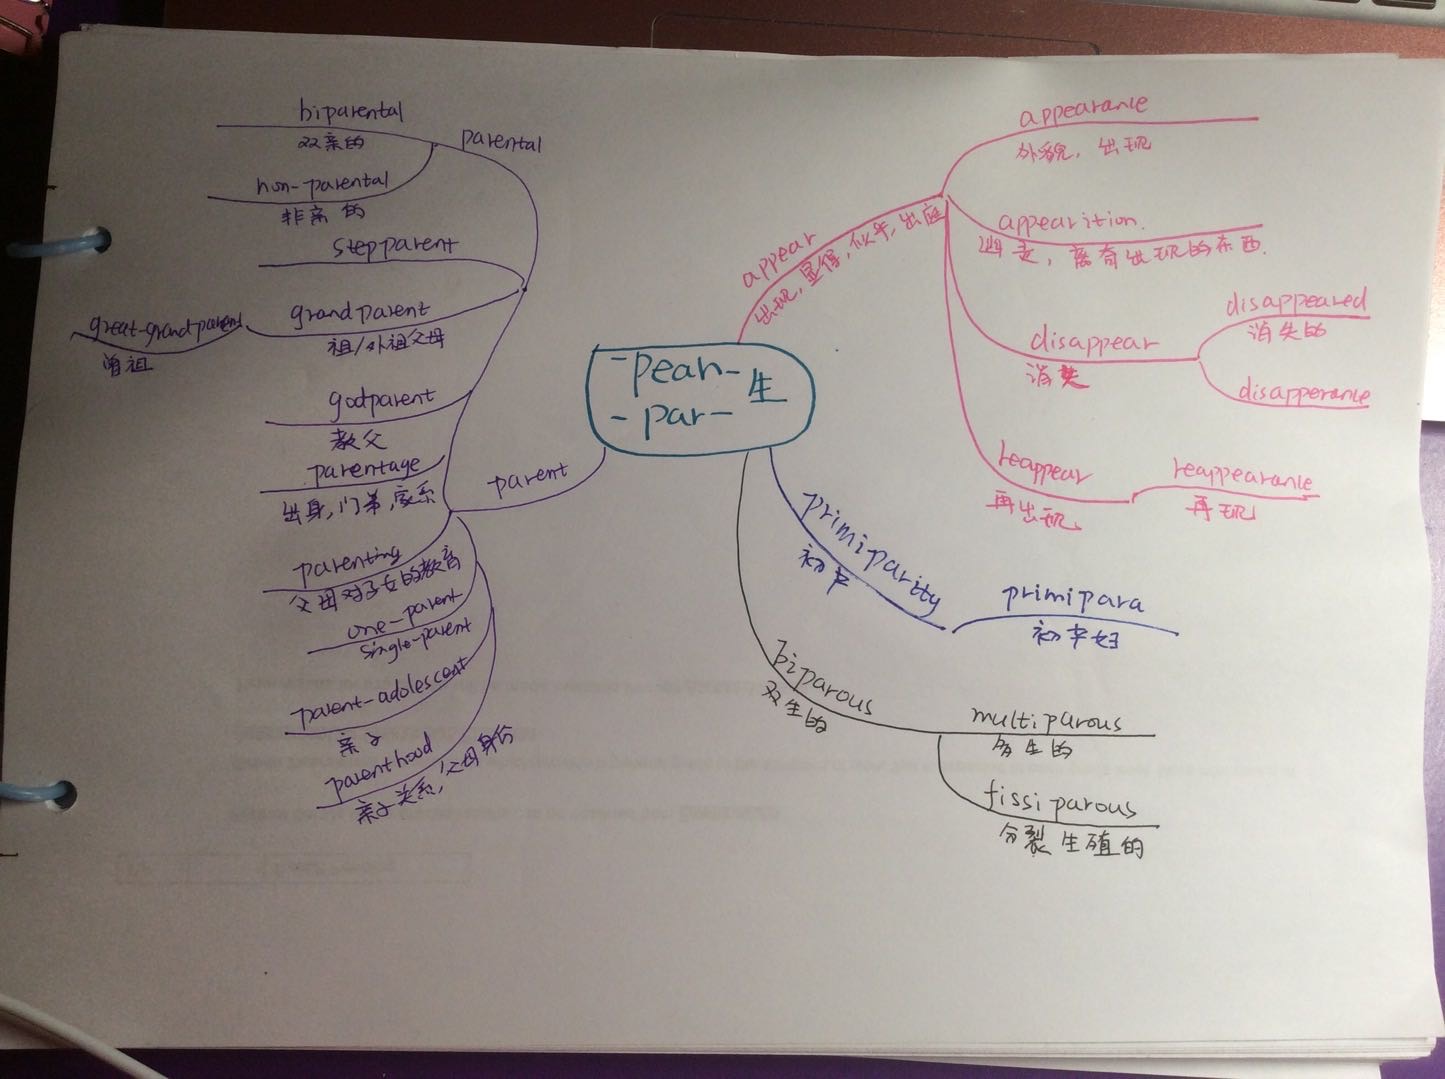 -pear- 生
-par-
appear
出现, 显得, 似乎, 出庭
appearance
外貌, 出现
appearition.
离奇出现的东西.
disappear
消失
disappeared
消失的
disapperance
reappear
再出现
reappearance
再现
primiparity
初产
primipara
初产妇
biparous
双生的
multiparous
多生的
fissiparous
分裂生殖的
parent
parental
biparental
双亲的
non-parental
非亲的
stepparent
grandparent
祖/外祖父母
great-grandparent
曾祖
godparent
教父
parentage
出身, 门第, 家系
parenting
父母对子女的教育
one-parent
single-parent
parent-adolescent
亲子
parenthood
亲子关系, 父母身份